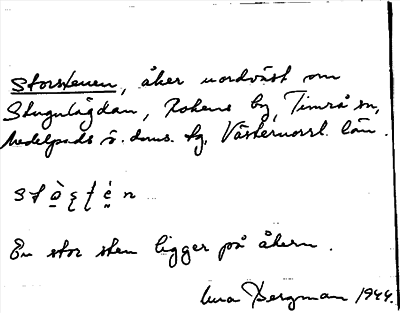 Storstenen, åker nordväst om
Stugulägdan, Rokens by, Timrå sn,
Medelpads ö. doms. hg, Västernorrl. län.
En stor sten ligger på åkern.
Bergman 1944.